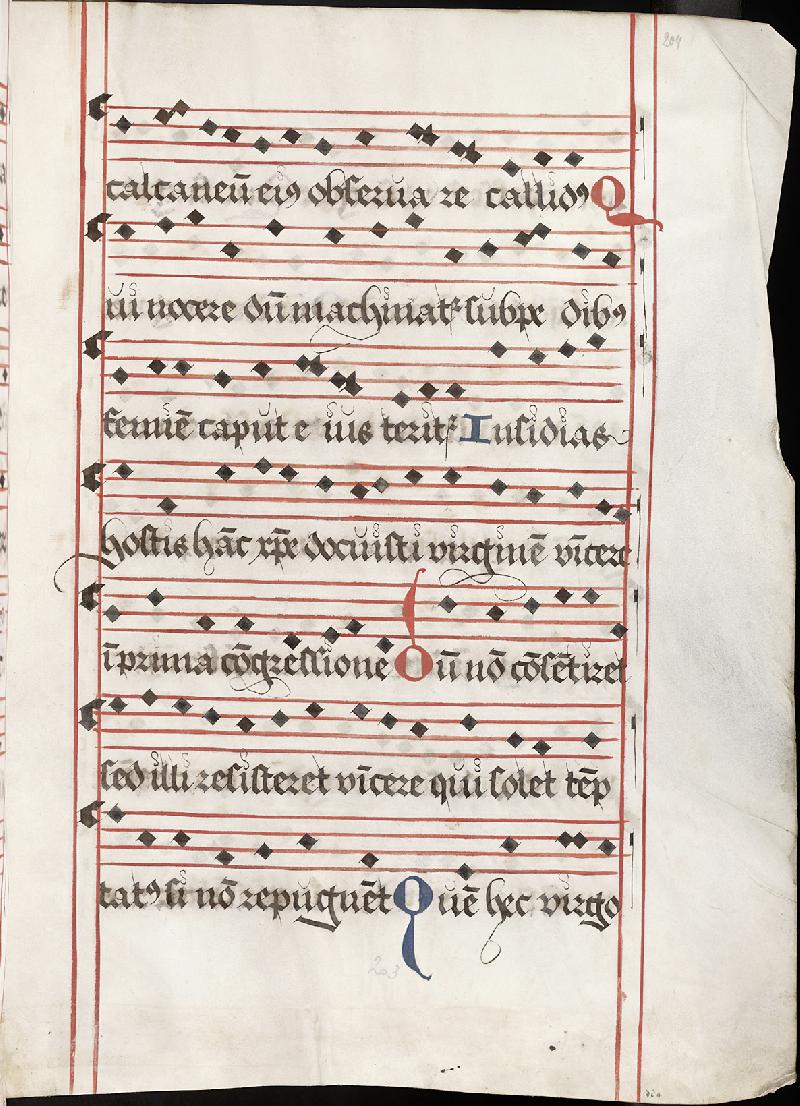 204
calcaneū eiꝯ obserua re callidꝯ Q
ui nocere dū machinat᷑ sub pe dibꝯ
femīe caput e ius terit᷑ Insidias
hostis hāc xp̄e docuisti virginē vīcere
ī prima cōgressione Cū nō cōsētiret
sed illi resisteret vīcere qui solet tēp
tatꝯ si nō repugnēt Quē hec virgo
203